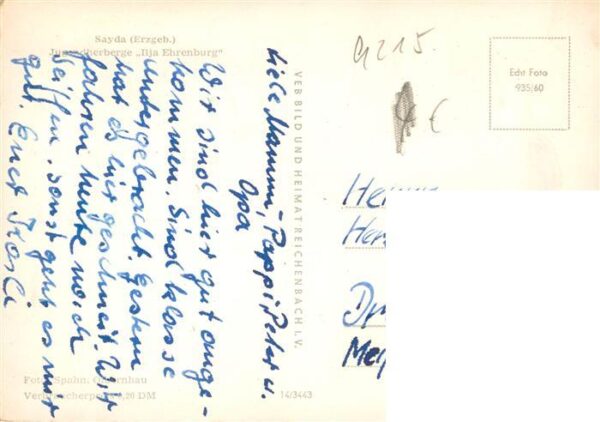 Sayda (Erzgeb.)
Jugendherberge „Ilja Ehrenburg"
Liebe Mammi, Pappi Peter u.
Opa
Wir sind hier gut ange-
kommen. Sind klasse
untergebracht. Gestern
hat es hier geschneit. Wir
fahren heute nach
Seiffen. Sonst geht es mir
gut. Euer
VEB BILD UND HEIMAT REICHENBACH I. V.
G 215.
€
Echt Foto
935/60
Foto: Spahn, Olbernhau
Verbraucherpreis 0,20 DM
14/3443